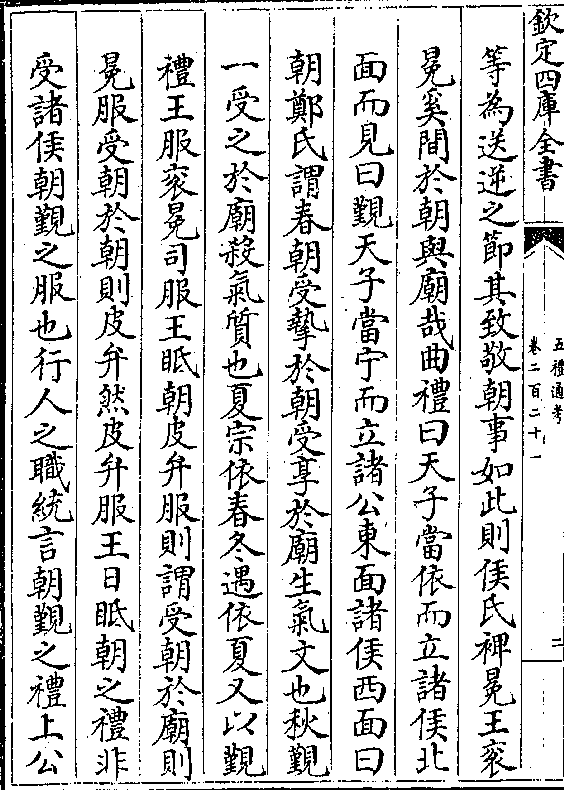 欽定四庫全書
五禮通考
卷二百二十一
二
等為送逆之節其致敬朝事如此則侯氏裨冕王衮
冕奚間於朝與廟哉曲禮曰天子當依而立諸侯北
面而見曰覲天子當宁而立諸公東面諸侯西面曰
朝鄭氏謂春朝受摯於朝受享於廟生氣文也秋覲
一受之於廟殺氣質也夏宗依春冬遇依夏又以覲
禮王服衮冕司服王眡朝皮弁服則謂受朝於廟則
冕服受朝於朝則皮弁然皮弁服王日眡朝之禮非
受諸侯朝覲之服也行人之職統言朝覲之禮上公